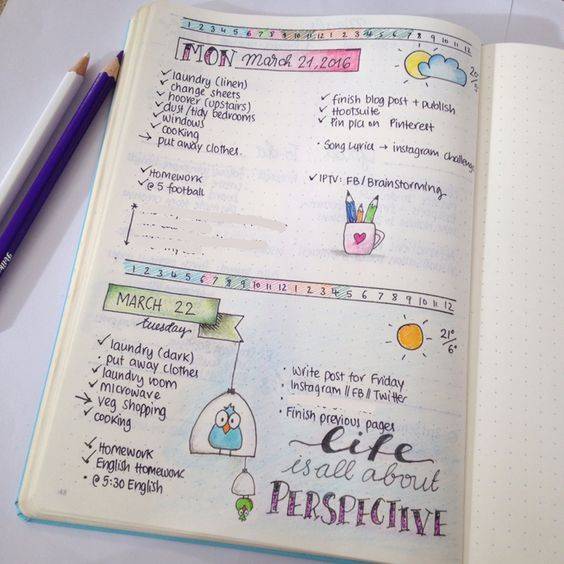 1 2 3 4 5 6 7 8 9 10 11 12 1 2 3 4 5 6 7 8 9 10 11 12
MON March 21, 2016
✓ laundry (linen)
✓ change sheets
✓ hoover (upstairs)
✓ dust/tidy bedrooms
✓ windows
✓ cooking
→ put away clothes
✓ Homework
✓ @ 5 football
20°
✓ finish blog post + publish
✓ Hootsuite
✓ Pin pics on Pinterest
• Song Lyrics → instagram challenge
✓ IPTV: FB/Brainstorming
1 2 3 4 5 6 7 8 9 10 11 12 1 2 3 4 5 6 7 8 9 10 11 12
MARCH 22
tuesday
✓ laundry (dark)
• put away clothes
✓ laundry room
✓ microwave
→ veg shopping
✓ cooking
✓ Homework
✓ English Homework
• @ 5:30 English
21°
6°
• Write post for Friday
• Instagram // FB // Twitter
• Finish previous pages
life
is all about
PERSPECTIVE
48